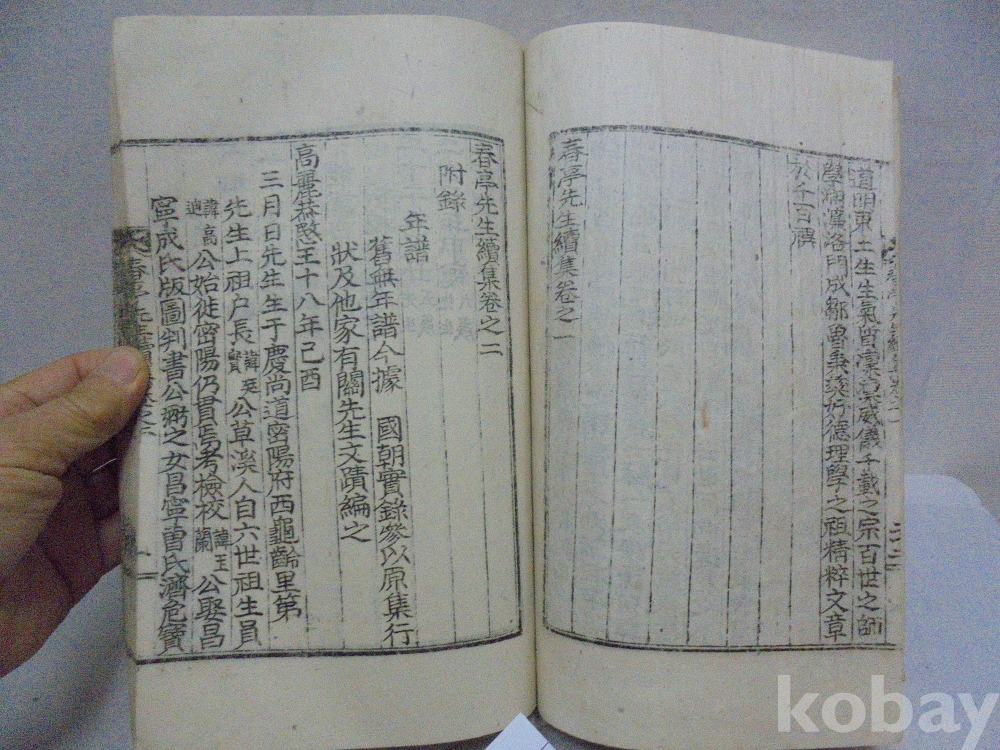 道明東土生生氣皆凜凜威儀千載之宗百世之師
學溯濂洛門成鄒魯秉彛好德理學之祖精粹文章
於千百禩
春亭先生續集卷之一
春亭先生續集卷之二
附錄
年譜
舊無年譜今據 國朝實錄叅以原集行
狀及他家有關先生文蹟編之
高麗恭愍王十八年己酉
三月日先生生于慶尚道密陽府西龜齡里第
先生上祖戶長諱廷實公草溪人自六世祖生員
諱高迪公始徙密陽仍貫焉考檢校諱玉蘭公娶昌
寧成氏版圖判書公弼之女昌寧曺氏濟危寶
kobay